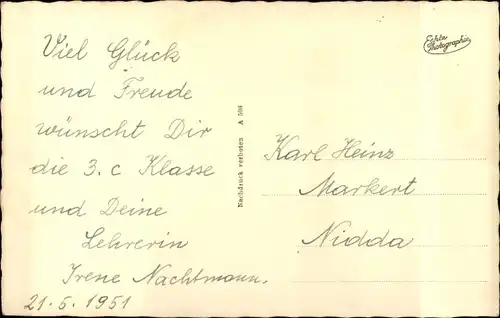 Viel Glück
und Freude
wünscht Dir
die 3. c Klasse
und Deine
Lehrerin
Irene Nachtmann.
21.5.1951
Nachdruck verboten A 506
Echte
Photographie
Karl Heinz
Markert
Nidda